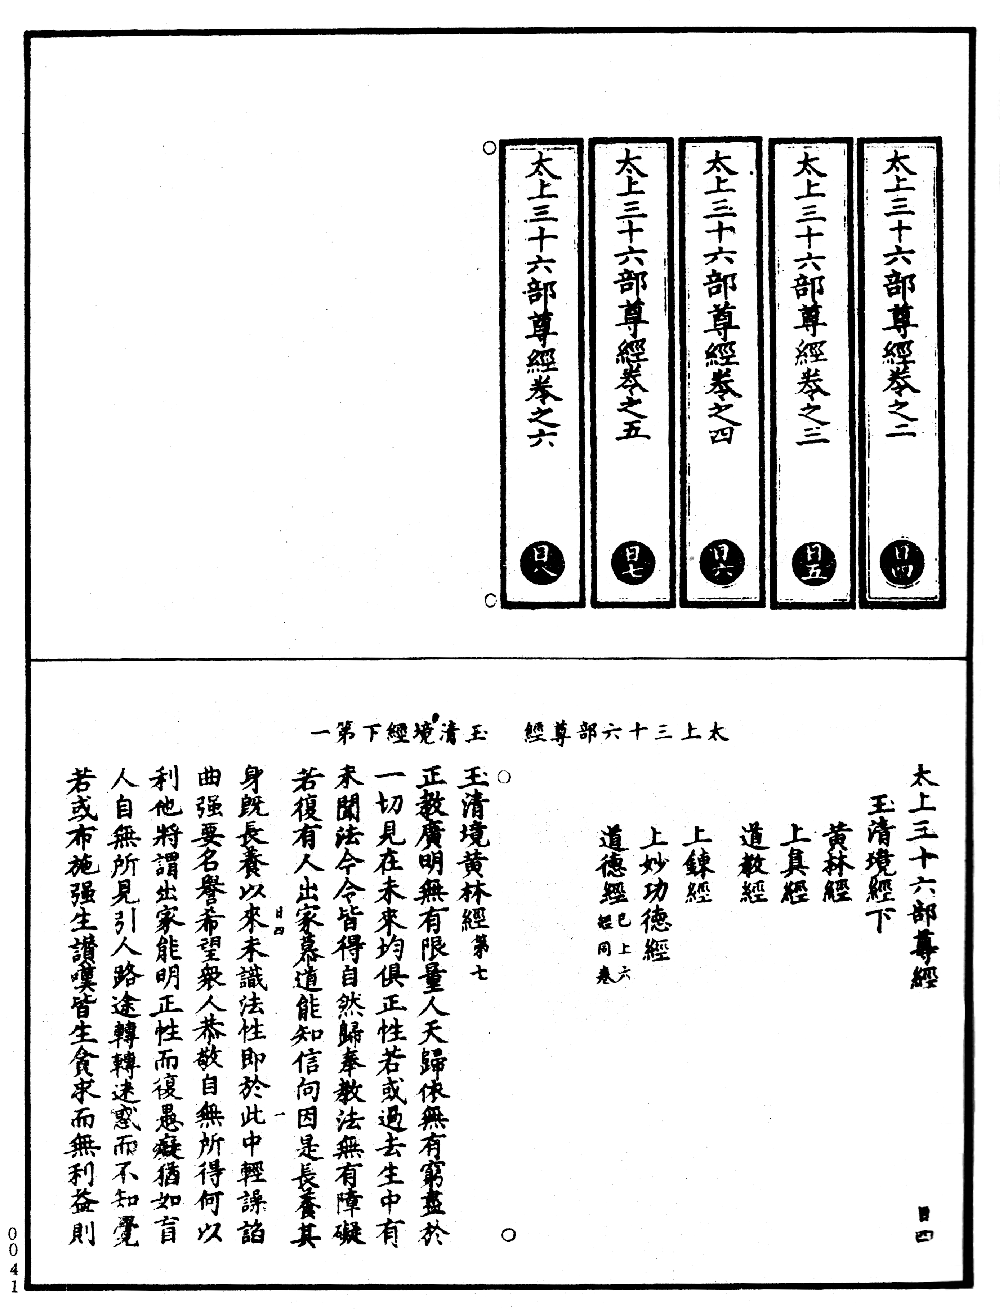 太上三十六部尊經卷之二
日四
太上三十六部尊經卷之三
日五
太上三十六部尊經卷之四
日六
太上三十六部尊經卷之五
日七
太上三十六部尊經卷之六
日八
太上三十六部尊經　玉清境經下第一
太上三十六部尊經
日四
玉清境經下
黃林經
上真經
道教經
上鍊經
上妙功德經
道德經已上六經同卷
玉清境黃林經第七
正教廣明無有限量人天歸依無有窮盡於
一切見在未來均俱正性若或過去生中有
未聞法今令皆得自然歸奉教法無有障礙
若復有人出家慕道能知信向因是長養其
日四　一
身既長養以來未識法性即於此中輕誂諂
曲强要名譽希望衆人恭敬自無所得何以
利他將謂出家能明正性而復愚癡猶如盲
人自無所見引人路途轉轉迷惑而不知覺
若或布施强生讃嘆皆生貪求而無利益則
0041